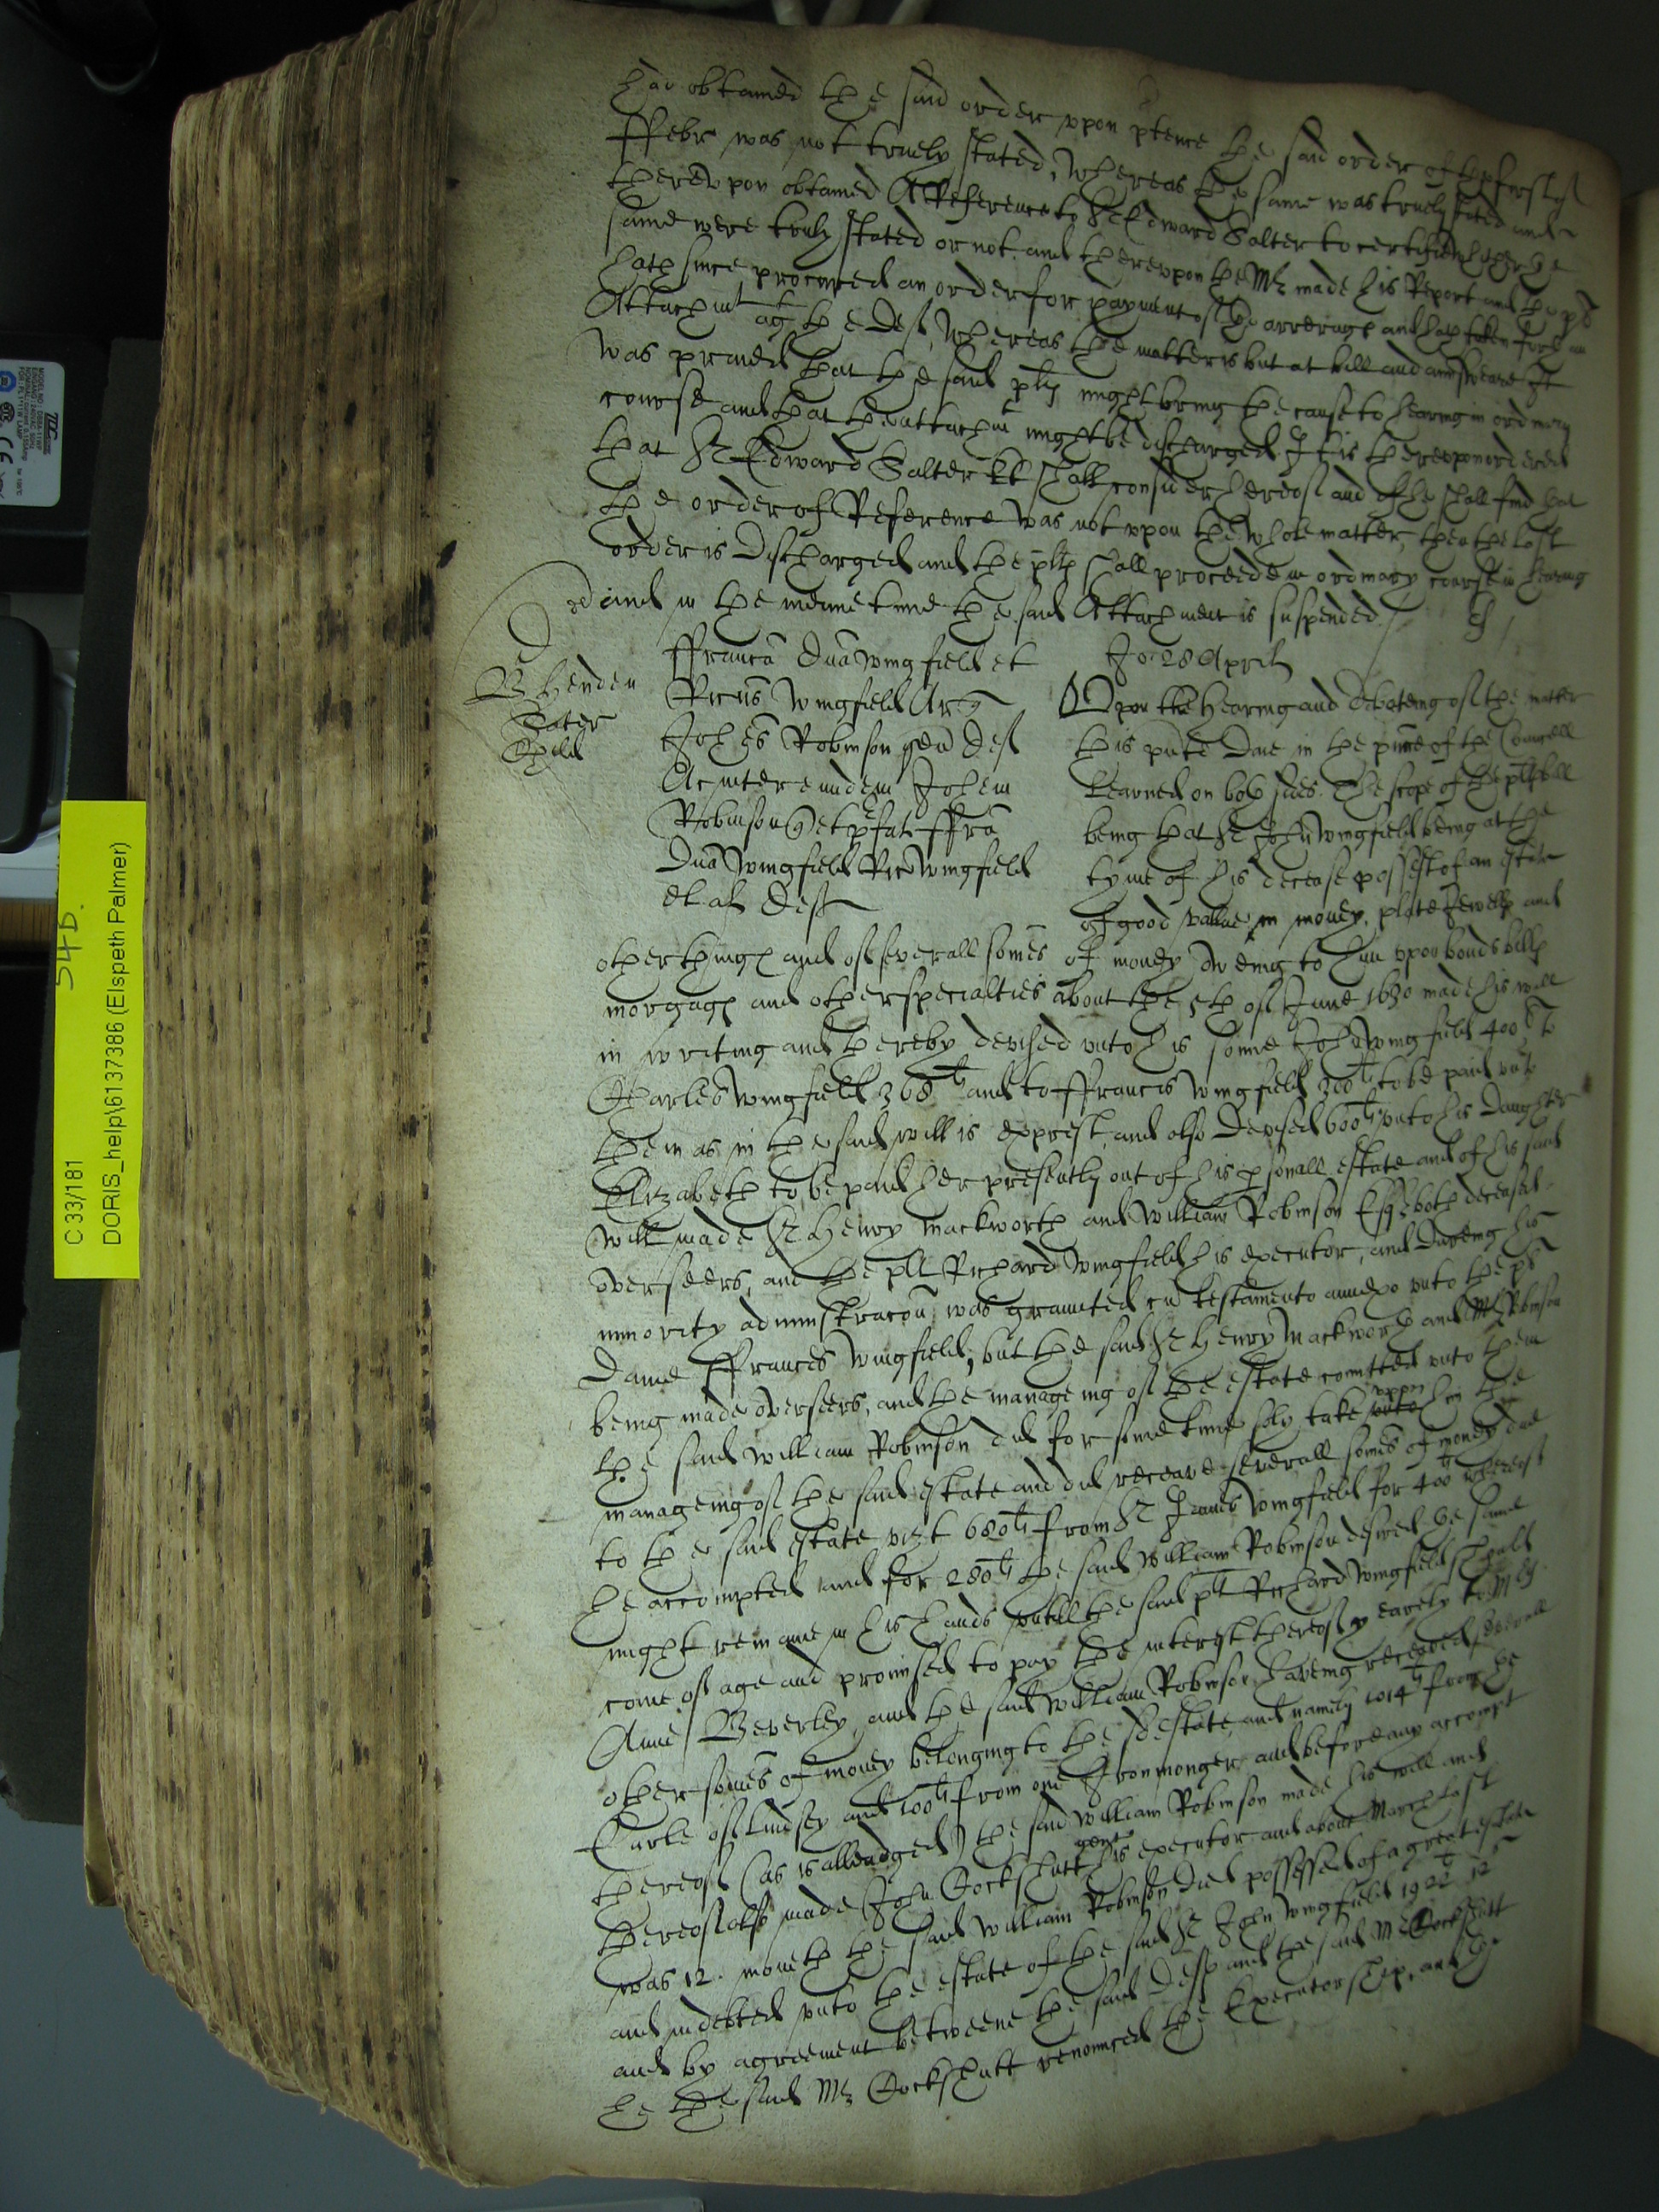 had obtained the said order upon ptence the said order of the first of
ffebr was not truely stated, whereas the same was truely stated and
thereupon obtained A Reference to Sr Edward Salter to certifie whether the
same were truly stated or not. and thereupon the Mr made his Report and the pl
hath since procured an order for payment of the arrerages and hath taken forth an
Attachmt agt the Deft, whereas the matter is but at bill and answeare It
was prayed that the said plt might bring the cause to hearing in ordinary
course and that the attachmt might be discharged. It is thereupon ordered
that Sr Edward Salter kt shall consider hereof and if he shall find that
the order of Reference was not upon the whole matter, then the last
order is Discharged and the plt shall proceede in ordinary course to hearing
and in the meane time the said Attachment is suspended
ffrancâ Dnâ Wingfield et
Ricus Wingfield Ar
Johes Robinson gen Deft
Ac inter eundem Johem
Robinson et pfat ffrâ
Dnâ Wingfield Ric Wingfield
et al Deft
B Henden
Tater
Child
Jo 28 April
Upon the Hearing and Debateing of the matter
this pnte Daie in the pnce of the Councell
Learned on both sides. The scope of the plts bill
being that Sr John Wingfield being at the
tyme of his decease possest of an estate
of good vallue in money, plate Jewells and
other things and of severall somes of money oweing to him upon bonds bills
morgages and other specialties about the 5th of June 1630 made his will
in writing and thereby devised unto his sonne John Wingfield 400li To
Charles Wingfield 368li and to ffrancis Wingfield 300li to be paid unto
them as in the said will is exprest and also Devised 600li unto his Daughter
Elizabeth to be paid her presently out of his psonall estate and of his said
will made Sr Henry Mackworth and William Robinson Esqr both deceased
overseers, and the plt Richard Wingfield his executor, and dureing his
minority administracon was graunted cu testamento annexo unto the pl
Dame ffrances Wingfield, but the said Sr Henry Mackworth and Mr Robinson
being made overseers, and the manageing of the estate comitted unto them
the said William Robinson did for some time soly take upon him the
manageing of the said estate and did receave severall somes of money due
to the said estate vizt 680li from Sr James Wingfield for 400li whereof
he accompted and for 280li the said William Robinson desired the same
might remaine in his hands untill the said plt Richard Wingfield should
come of age and promised to pay the interest thereof yearely to Mrs
Anne Beverley and the said William Robinson haveing receaved severall
other somes of money belonging to the sd estate and namely 1014li from the
Earle of Lindsey and 100li from one Ironmonger and before any accompt
thereof (as is alleadged) the said William Robinson made his will and
thereof also made John Cockshutt gent his executor and about March last
was 12. moneth the said William Robinson died possessed of a great estate
and indebted unto the estate of the said Sr John Wingfield 1922li 12s
and by agreement betweene the said Deft and the said Mr Cockshutt
he the said Mr Cockshutt renounced the Executorship, and the
54 D.
C 33/181
DORIS_help\6137386 (Elspeth Palmer)